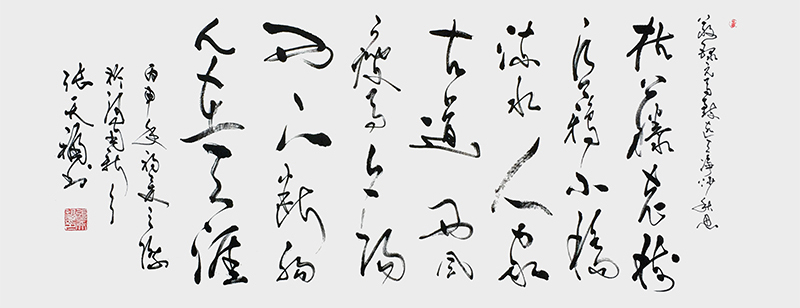 录元马致远天净沙秋思
枯藤老树
昏鸦小桥
流水人家
古道西风
瘦马夕阳
西下断肠
人在天涯
丙申年初夏之际
张天福书